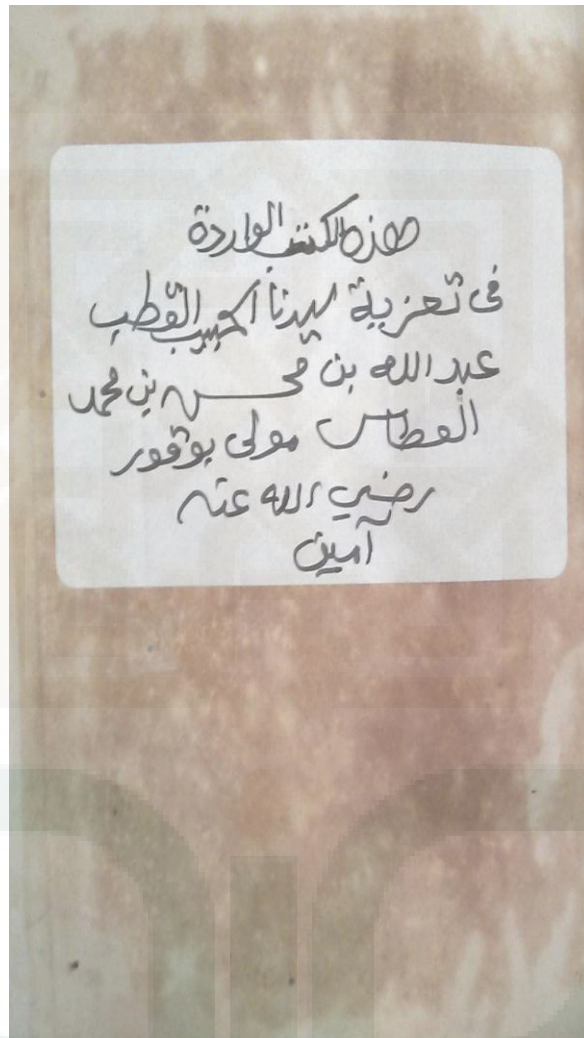 هذه الكتب الواردة
فى تعزية سيدنا الحبيب القطب
عبد الله بن محسن بن محمد
العطاس مولى بوقور
رضي الله عنه
آمين